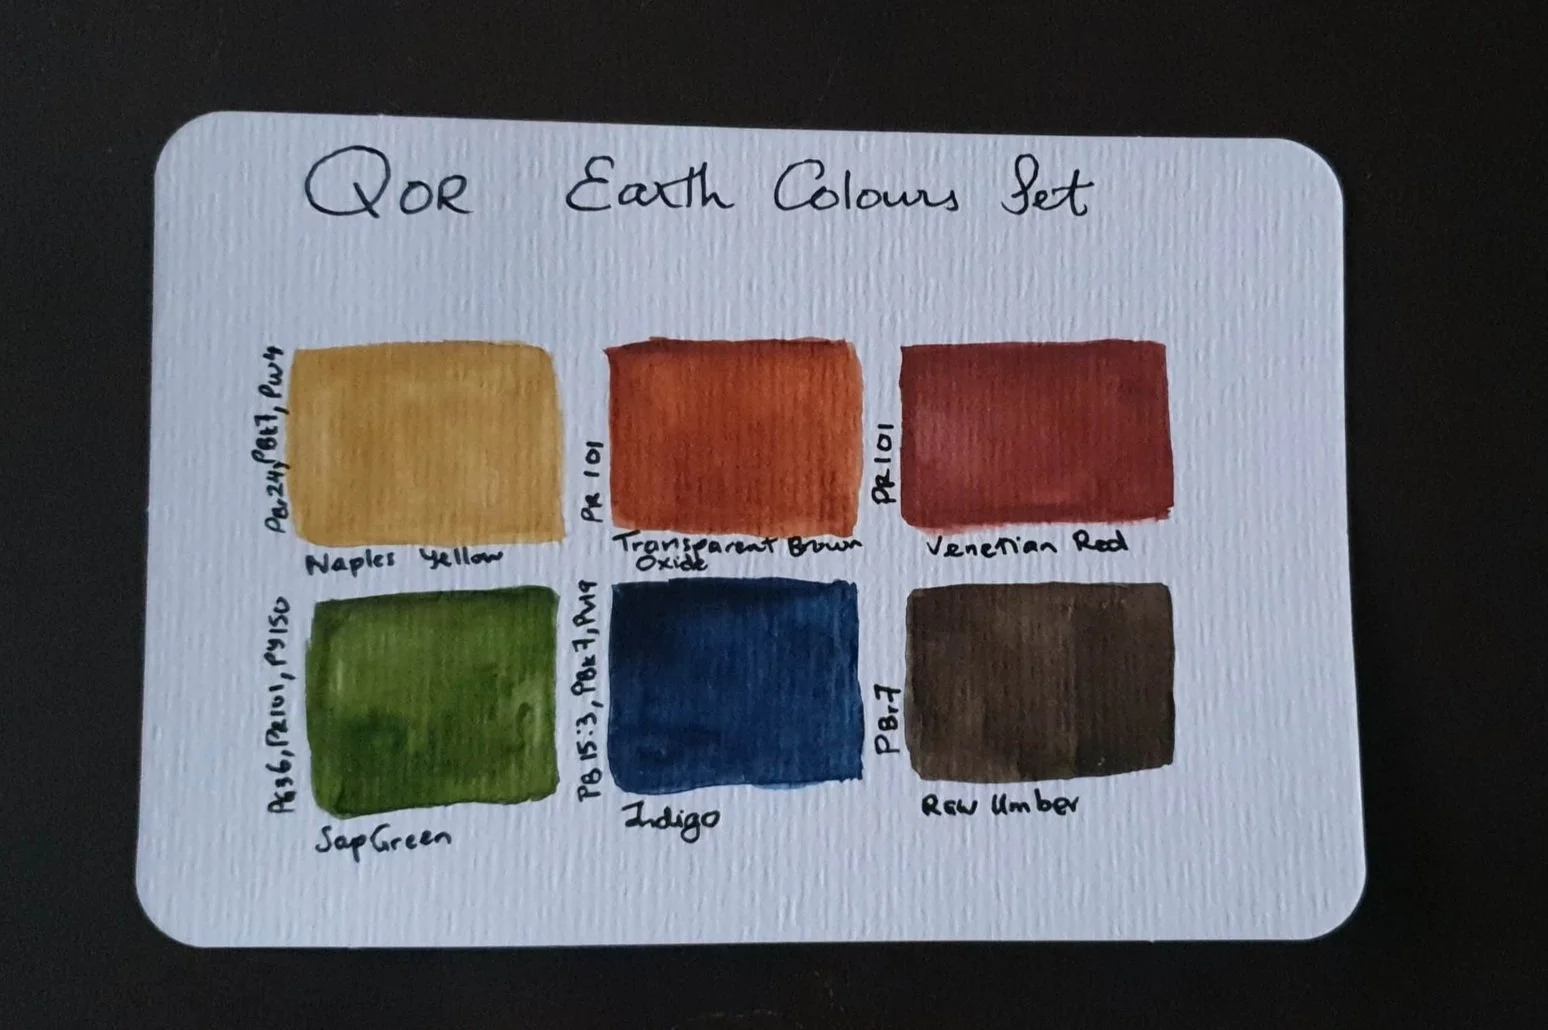 QOR Earth Colours Set
PBr24, PBk7, PW4
Naples Yellow
PR 101
Transparent Brown
Oxide
PR101
Venetian Red
PG36, PR101, PY150
Sap Green
PB 15:3, PBk 7, PV19
Indigo
PBr7
Raw Umber